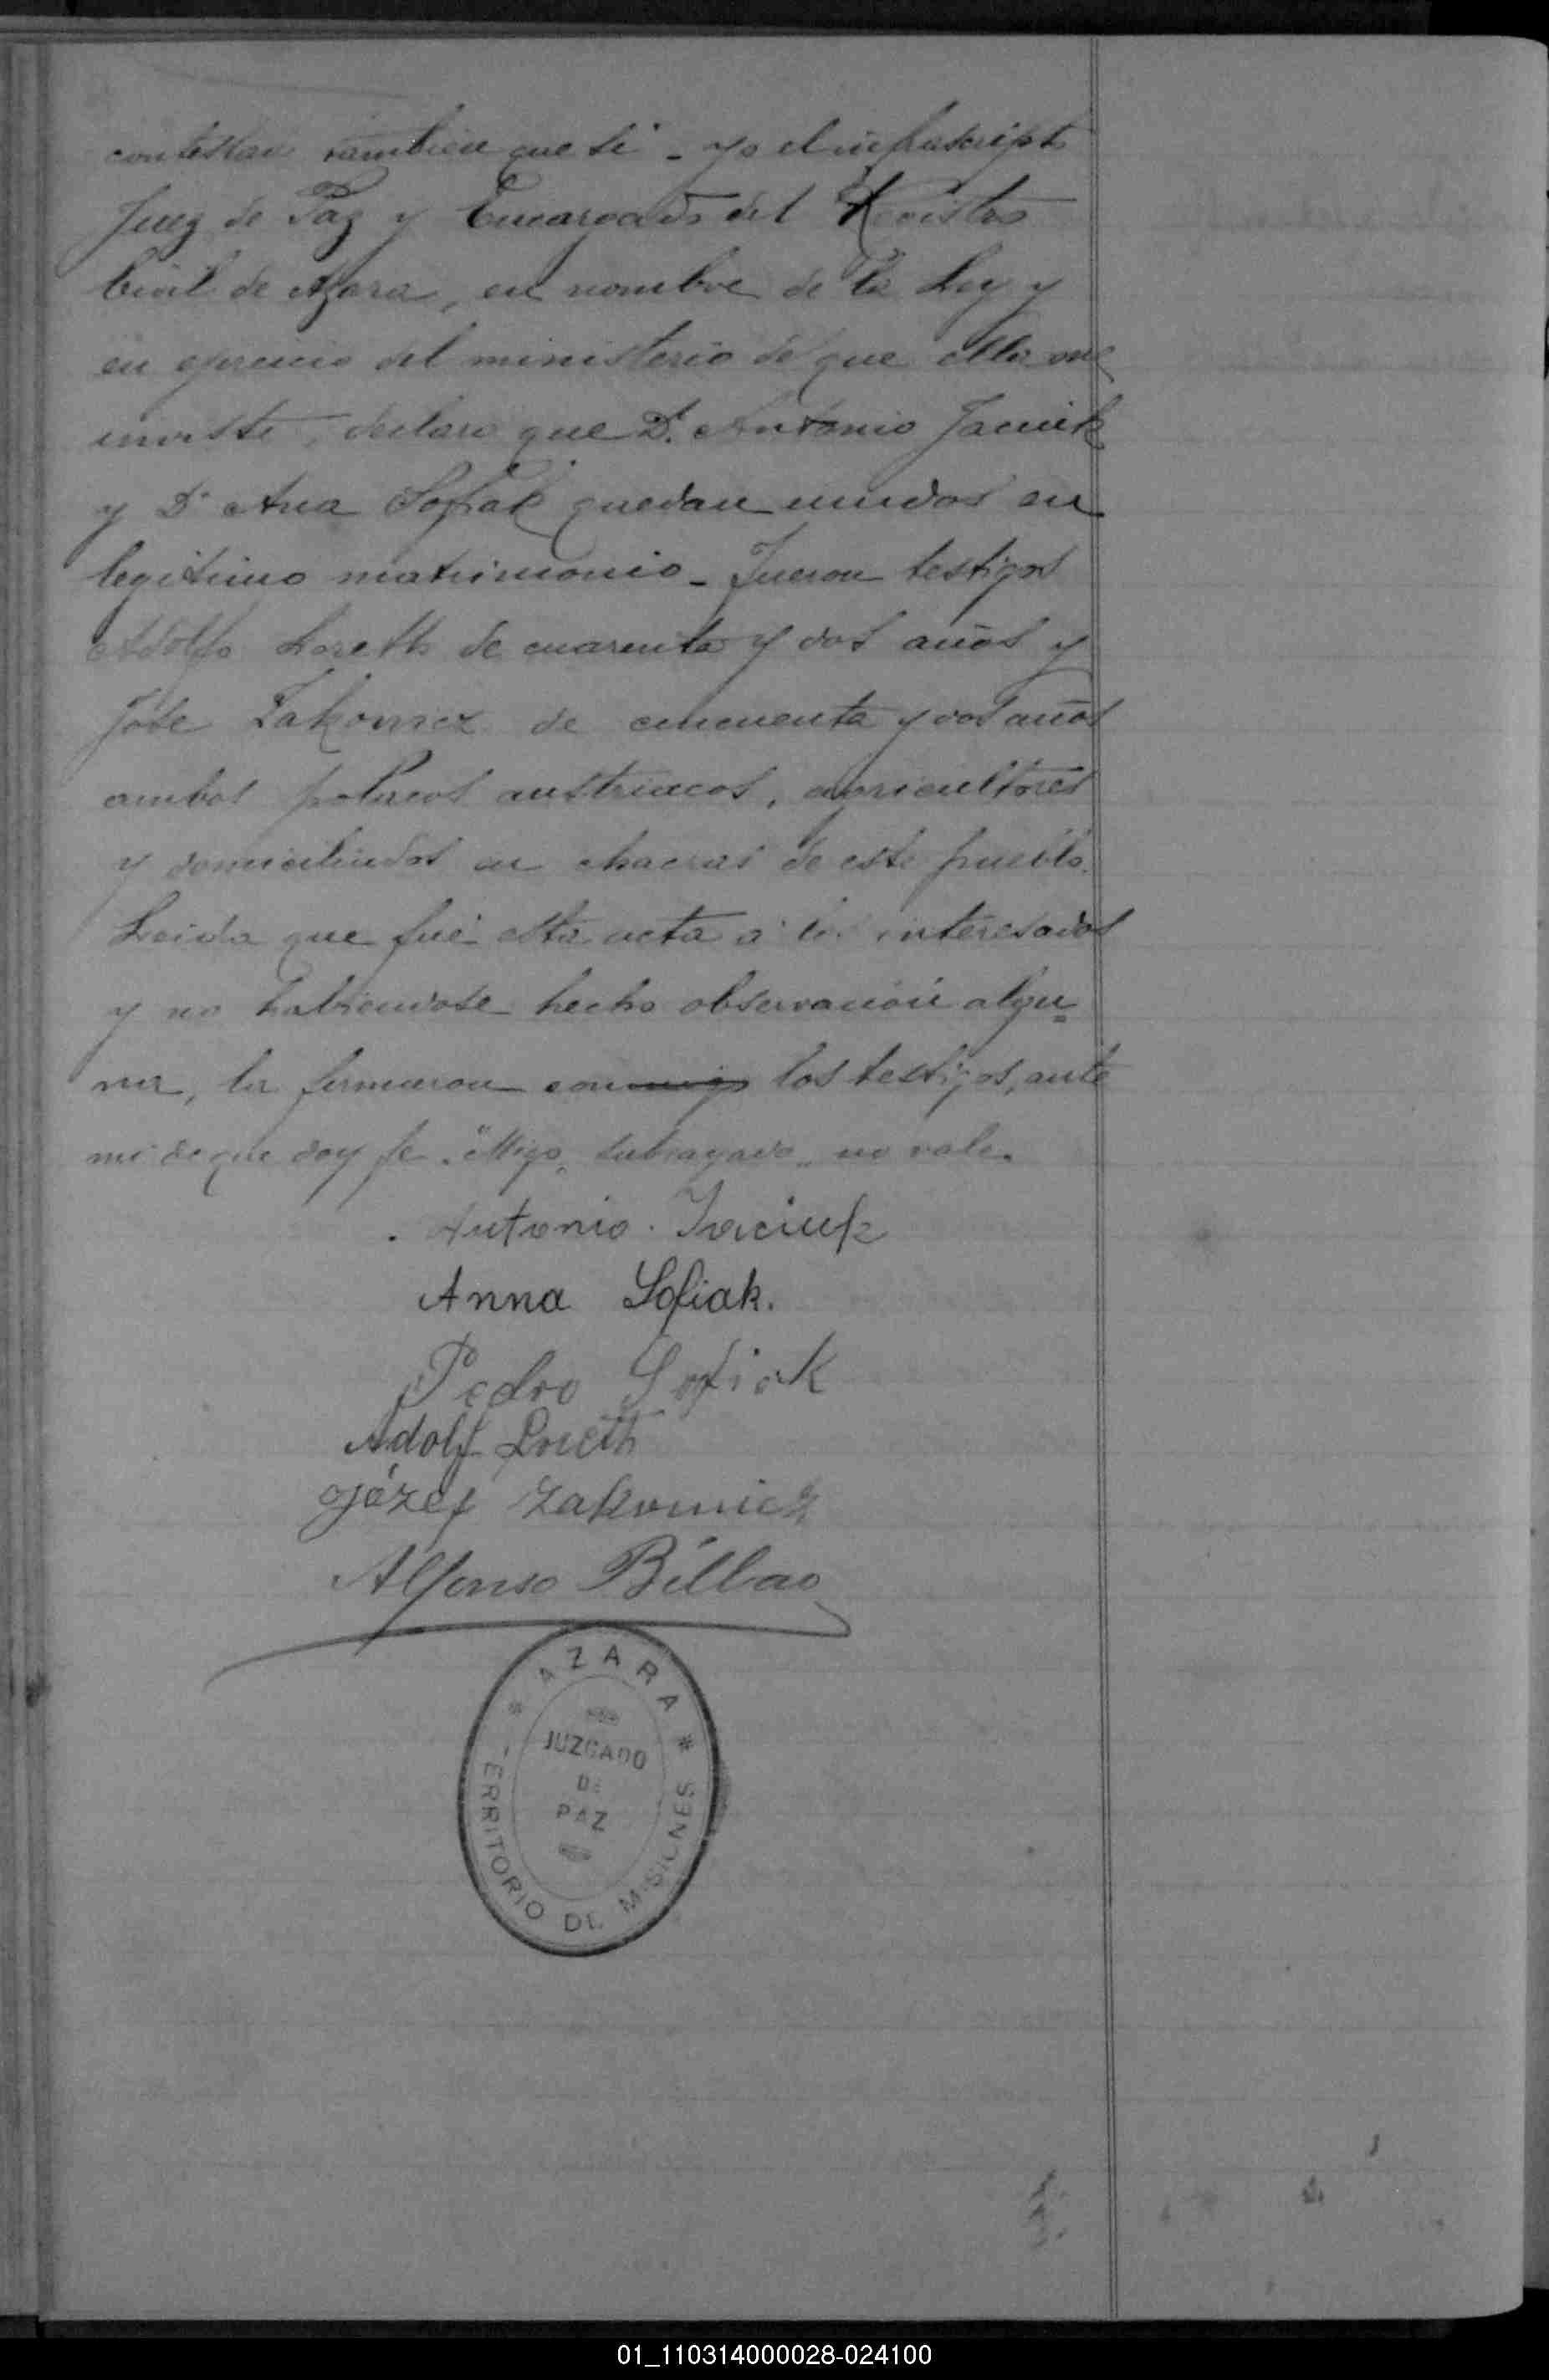 contestan tambien que si - yo el infrascripto
Juez de Paz y Encargado del Rejistro
Civil de Azara, en nombre de la Ley y
en ejercicio del ministerio de que ella me
inviste, declaro que Dn. Antonio Jaciuk
y Da Ana Sofiak quedan unidos en
legitimo matrimonio - Fueron testigos
Adolfo Loreth de cuarenta y dos años y
Jose Zakovicz de cincuenta y dos años
ambos polacos austriacos, agricultores
y domiciliados en chacras de este pueblo.
Leida que fué esta acta á los interesados
y no habiendose hecho observación algu=
na, la firmaron conmigo los testigos, ante
mi de que doy fe. "Migo" subrayado no vale.
Antonio. Jaciuk
Anna Sofiak.
Pedro Sofiak
Adolf Loreth
Józef
Alfonso Bilbao
* AZARA *
JUZGADO
DE
PAZ
TERRITORIO DE MISIONES
01_110314000028-024100